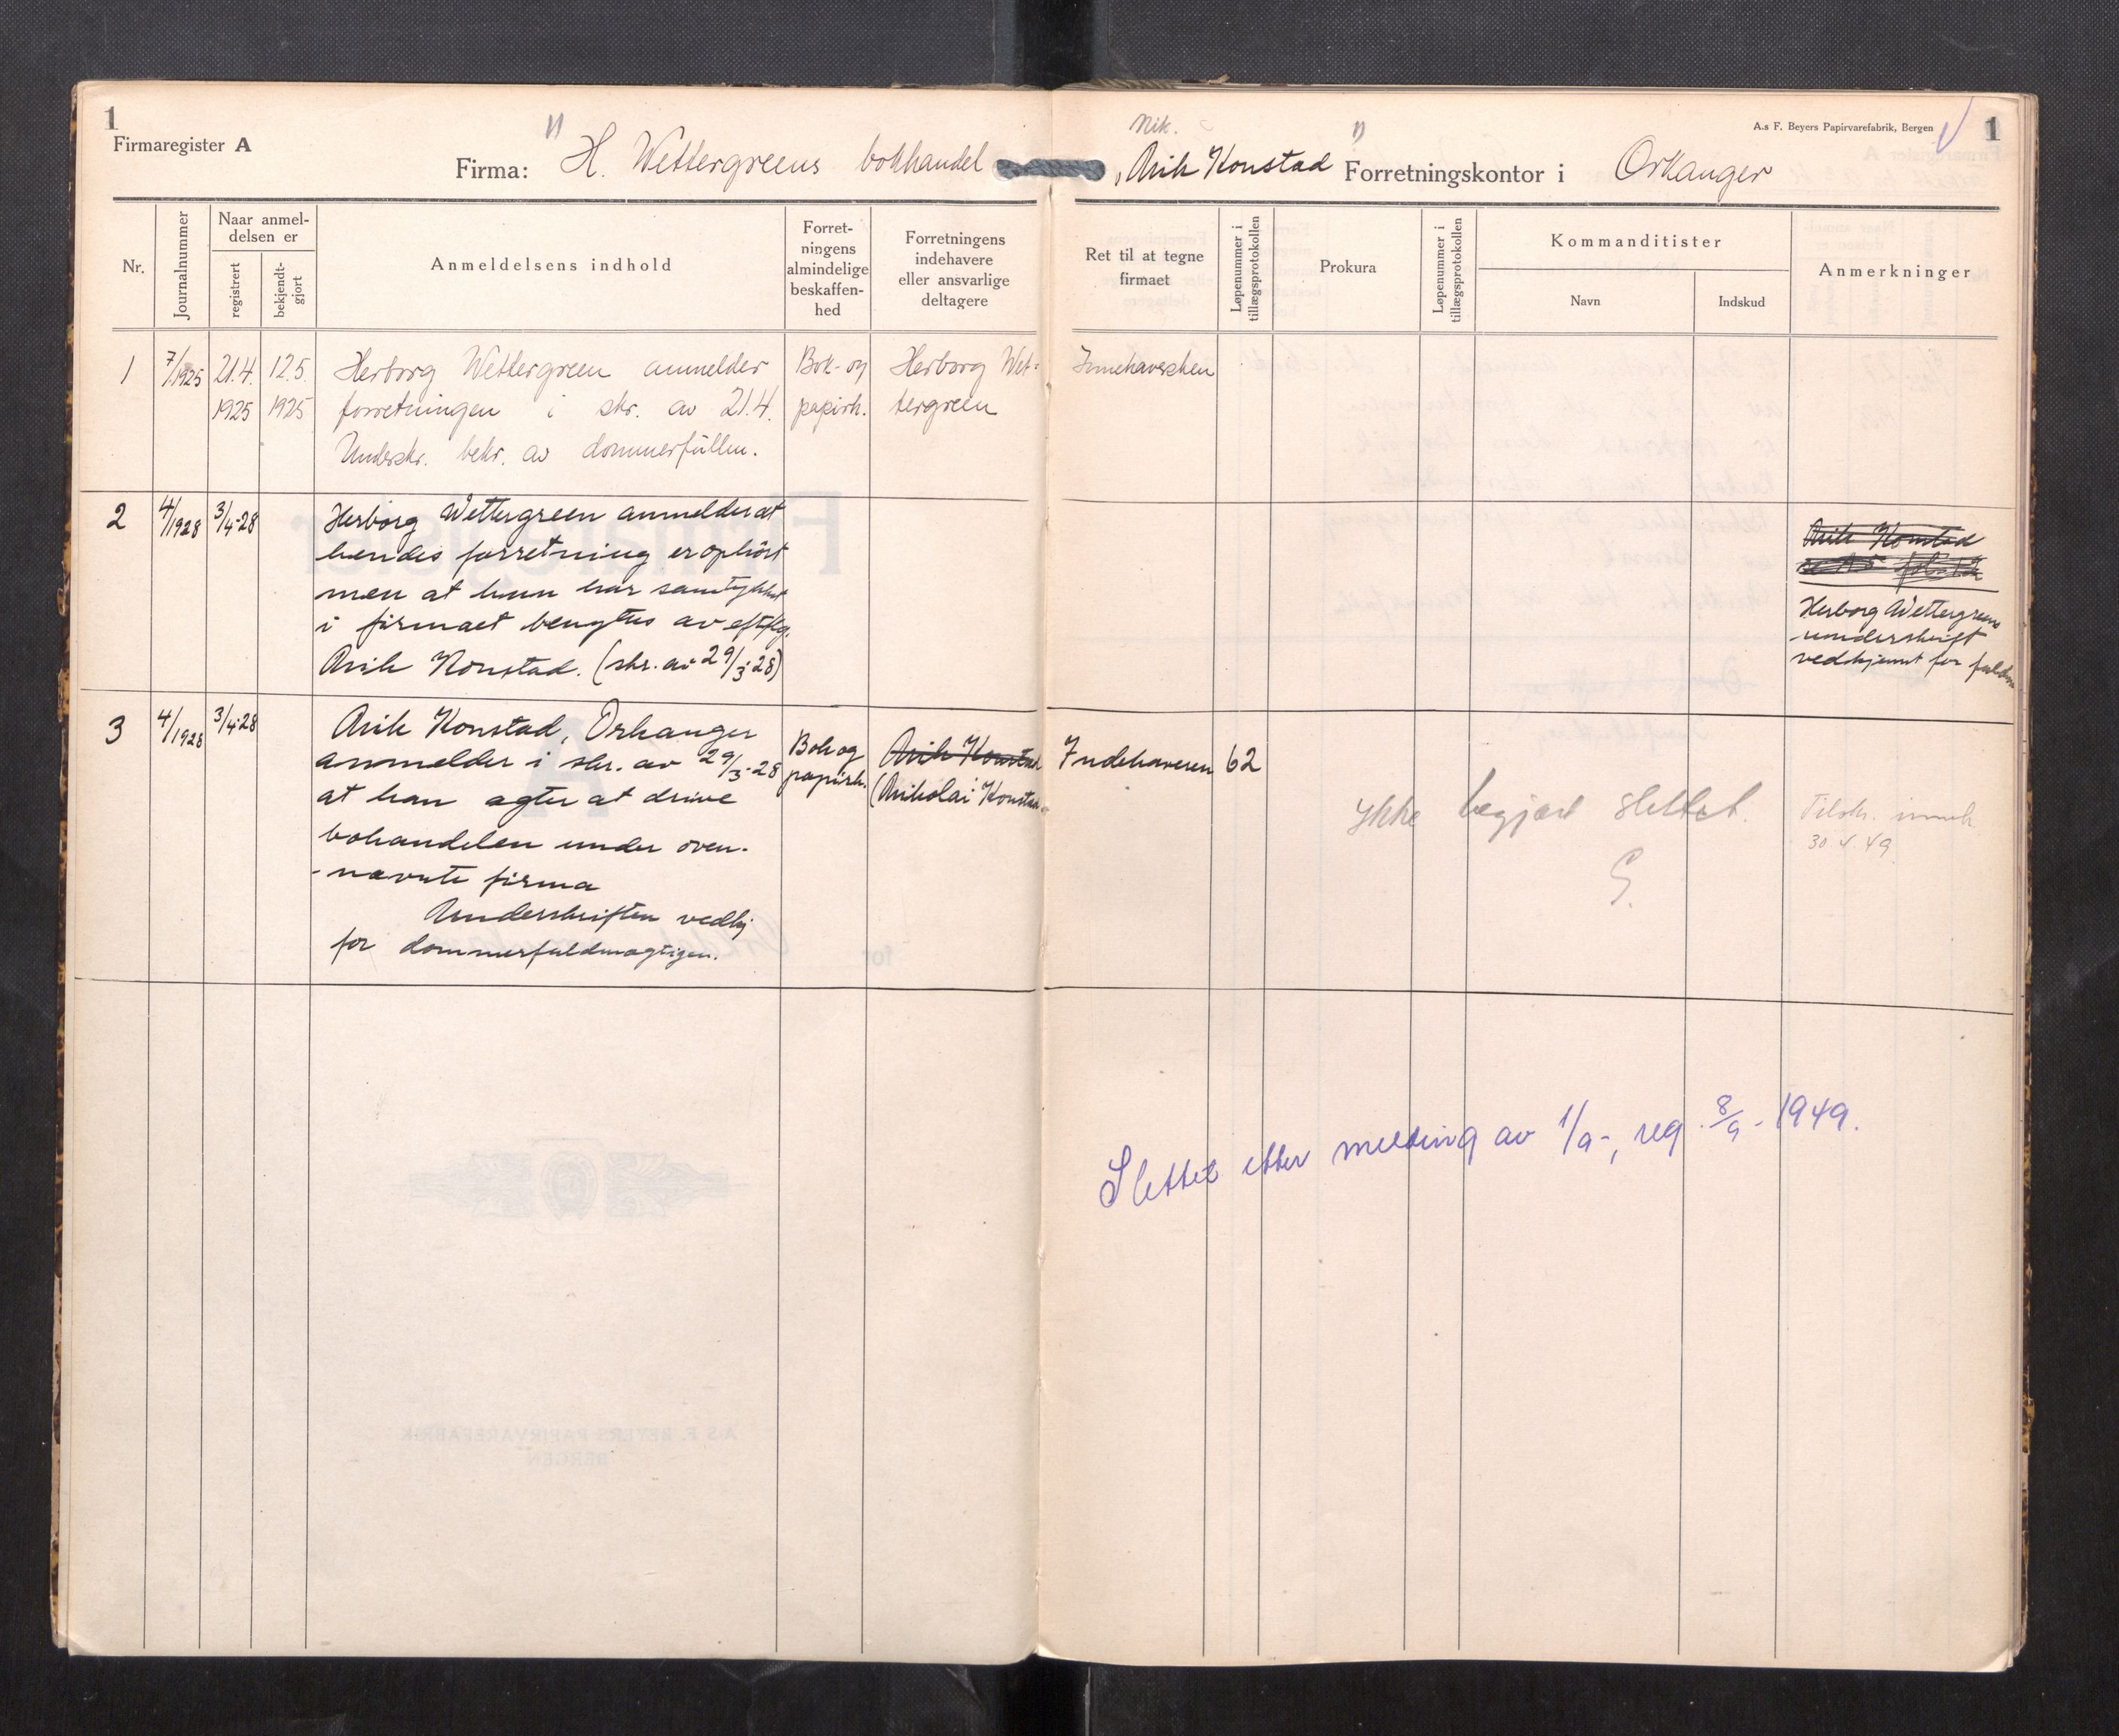 1
Firmaregister A
Firma: H. Wettergreens bokhandel
Nik.
Nik Konstad Forretningskontor i Orkanger
A.s F. Beyers Papirvarefabrik, Bergen
1
Nr.
Journalnummer
Naar anmel-
delsen er
registrert
bekjendt-
gjort
Anmeldelsens indhold
Forret-
ningens
almindelige
beskaffen-
hed
Forretningens
indehavere
eller ansvarlige
deltagere
Ret til at tegne
firmaet
Løpenummer i
tillægsprotokollen
Prokura
Løpenummer i
tillægsprotokollen
Kommanditister
Navn
Indskud
Anmerkninger
1
7/1925
21.4.
1925
12.5.
1925
Herborg Wettergreen anmelder
forretningen i skr. av 21.4.
Underskr. bekr. av dommerfullm.
Bok- og
papirh.
Herborg Wet-
tergreen
Innehaversken
2
4/1928
3/4-28
Herborg Wettergreen anmelder at
hendes forretning er ophørt
men at hun har samtykket
i firmaet benyttes av eftflg.
Nik Konstad. (skr. av 29/3-28)
Nik Konstad
Herborg Wettergreens
underskrift
vedkjennt for
3
4/1928
3/4-28
Nik Konstad, Orkanger
anmelder i skr. av 29/3-28
at han agter at drive
bohandelen under oven-
nævnte firma
Underskriften vedkj
for dommerfuldmægtigen.
Bok og
papirh.
Nik Konstad
(Nikolai Konstad
Indehaveren
62
Ikke begjært slettet.
G.
Tilskr. inneh
30.4.49
Slettet etter melding av 1/9-, reg. 8/9-1949.